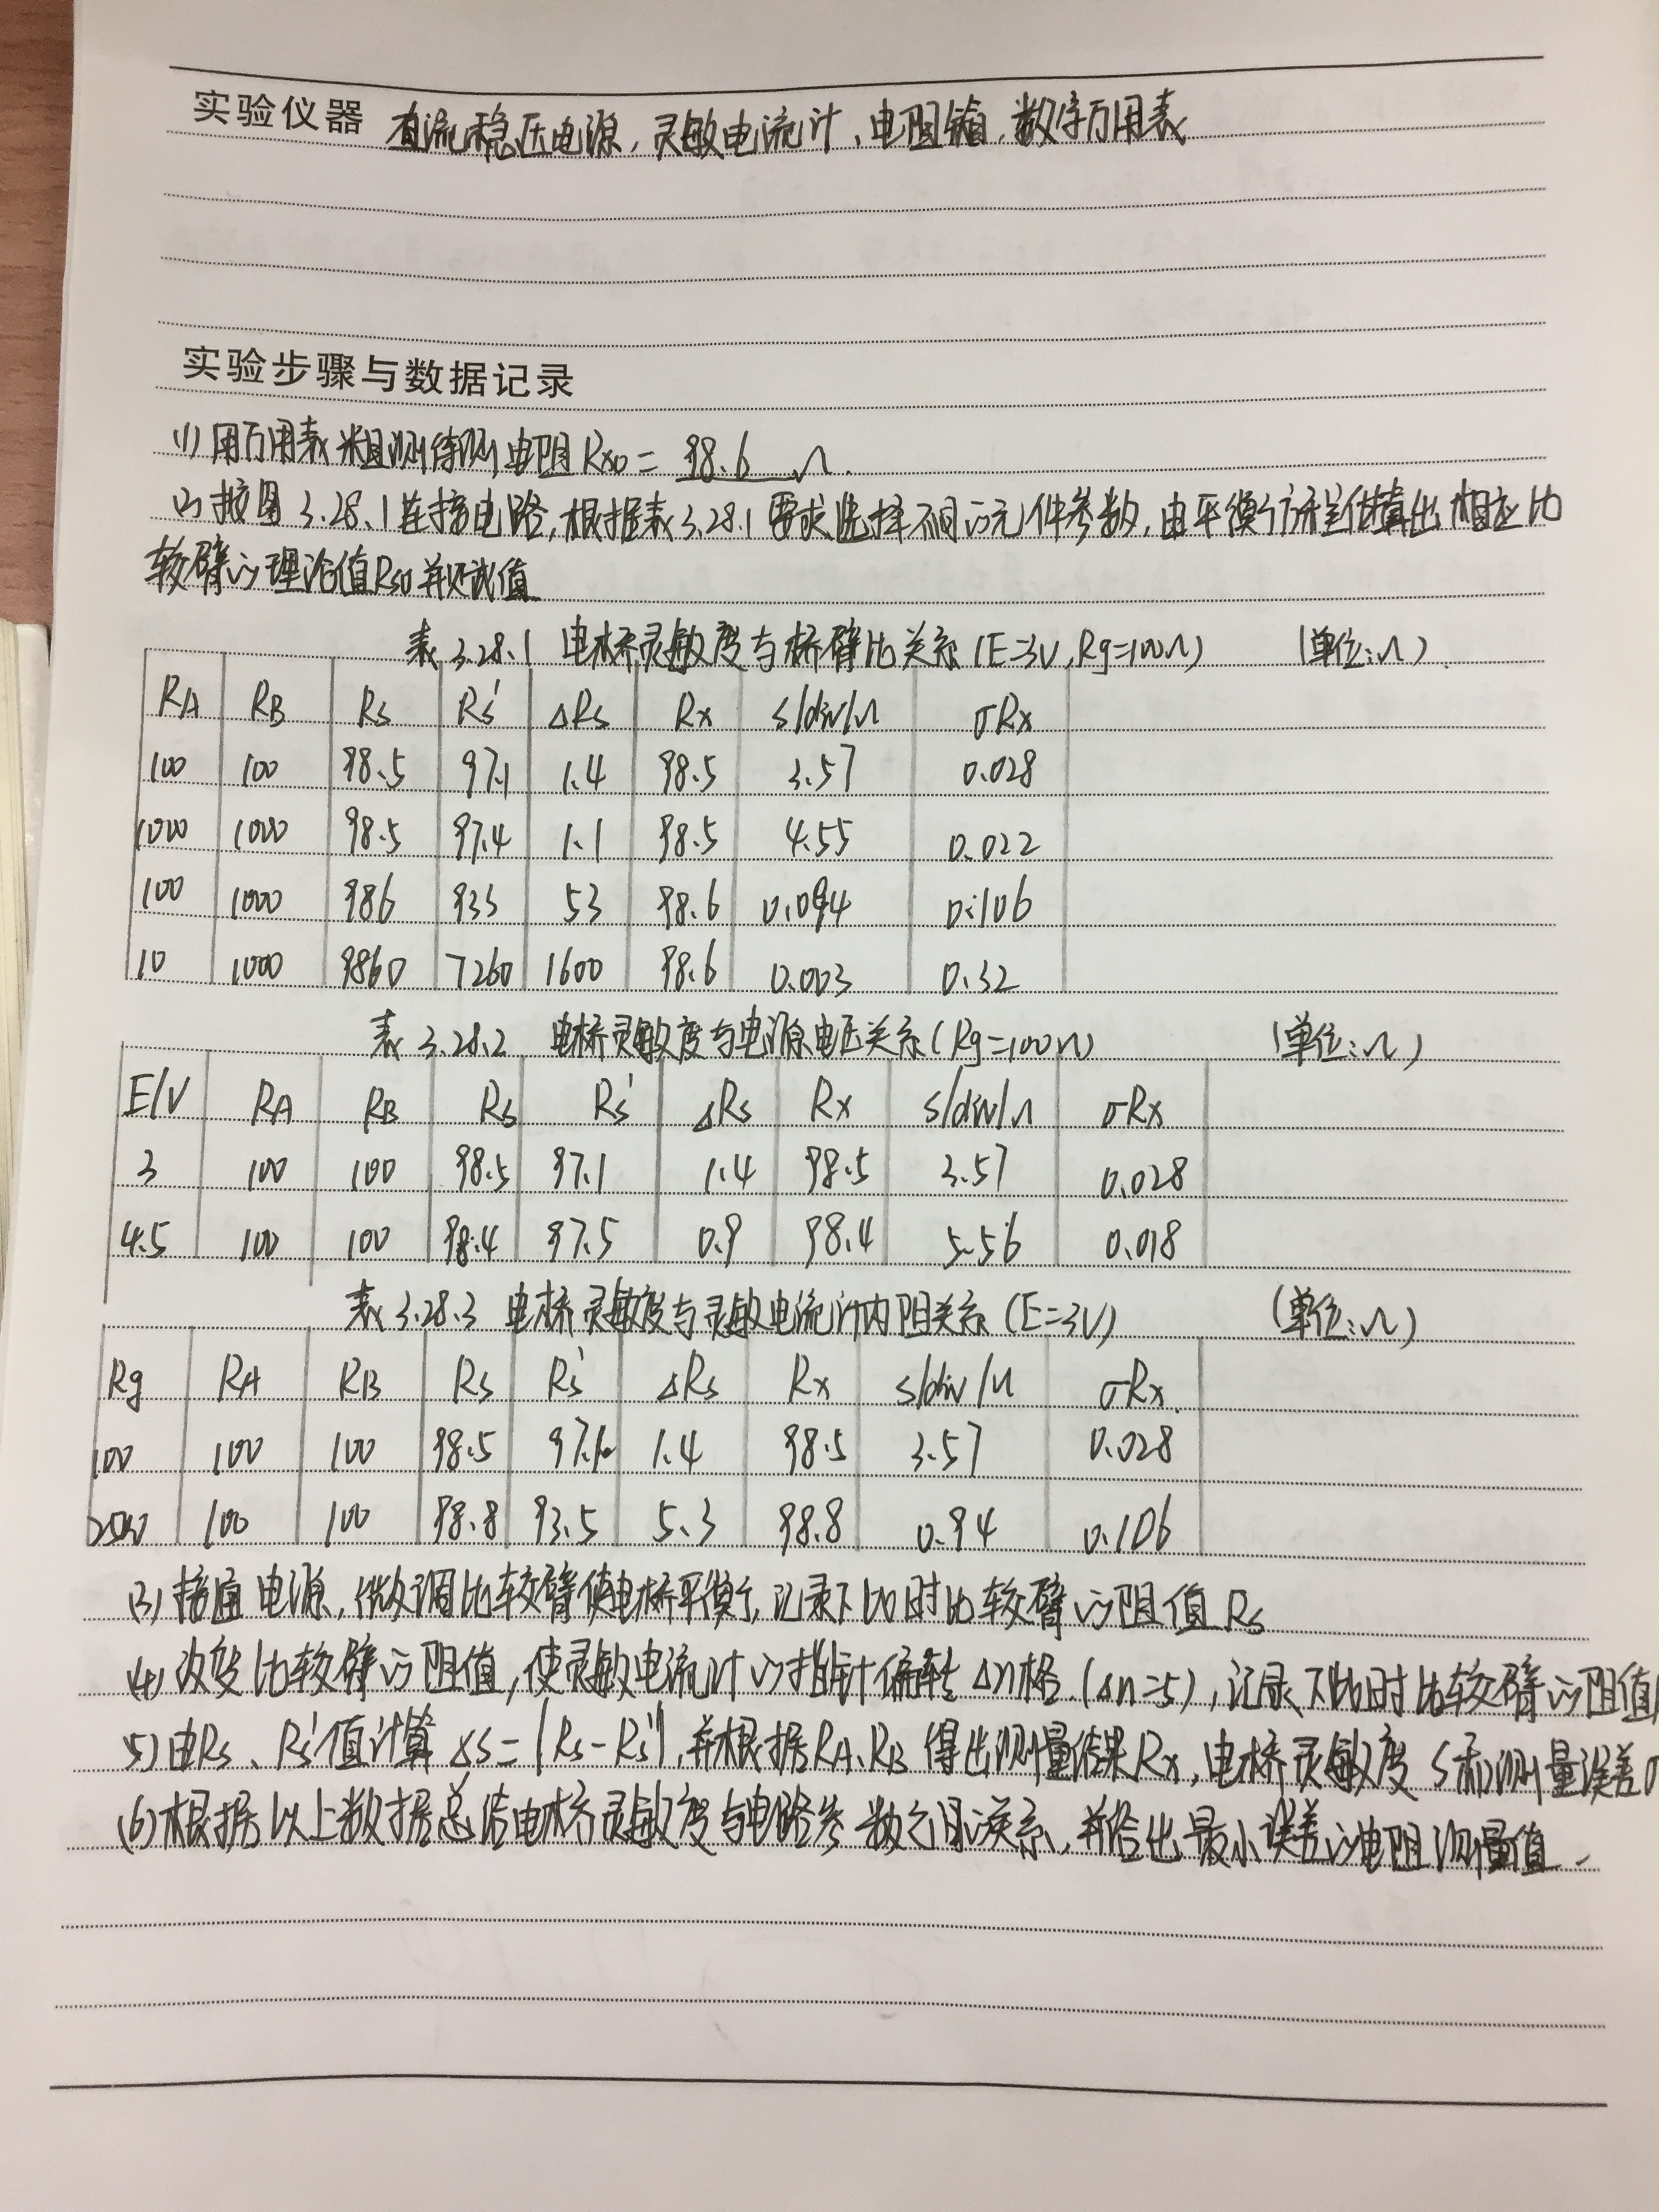 实验仪器 直流稳压电源,灵敏电流计、电阻箱,数字万用表
实验步骤与数据记录
(1)用万用表粗测待测电阻Rx0= 98.6 Ω.
(2)按图3.28.1连接电路,根据表3.28.1要求选择不同的元件参数,由平衡方程估算出相应比
较臂的理论值Rs0并试值
表3.28.1 电桥灵敏度与桥臂比关系(E=3V,Rg=100Ω) (单位:Ω).
RA RB Rs Rs' ΔRs Rx S/div/Ω σRx
100 100 98.5 97.1 1.4 98.5 3.57 0.028
1000 1000 98.5 97.4 1.1 98.5 4.55 0.022
100 1000 986 933 53 98.6 0.094 0.106
10 1000 9860 7260 1600 98.6 0.003 0.32
表3.28.2 电桥灵敏度与电源电压关系(Rg=100Ω) (单位:Ω)
E/V RA RB Rs Rs' ΔRs Rx S/div/Ω σRx
3 100 100 98.5 97.1 1.4 98.5 3.57 0.028
4.5 100 100 98.4 97.5 0.9 98.4 5.56 0.018
表3.28.3 电桥灵敏度与灵敏电流计内阻关系(E=3V) (单位:Ω)
Rg RA RB Rs Rs' ΔRs Rx S/div/Ω σRx
100 100 100 98.5 97.1 1.4 98.5 3.57 0.028
2500 100 100 98.8 93.5 5.3 98.8 0.94 0.106
(3)接通电源,微调比较臂使电桥平衡,记录下此时比较臂的阻值Rs
(4)改变比较臂的阻值,使灵敏电流计的指针偏转Δn格.(Δn=5),记录下此时比较臂的阻值
(5)由Rs、Rs'值计算ΔS=|Rs-Rs'|,并根据RA、RB得出测量结果Rx,电桥灵敏度S和测量误差σ
(6)根据以上数据总结电桥灵敏度与电路参数之间关系,并给出最小误差的电阻测量值